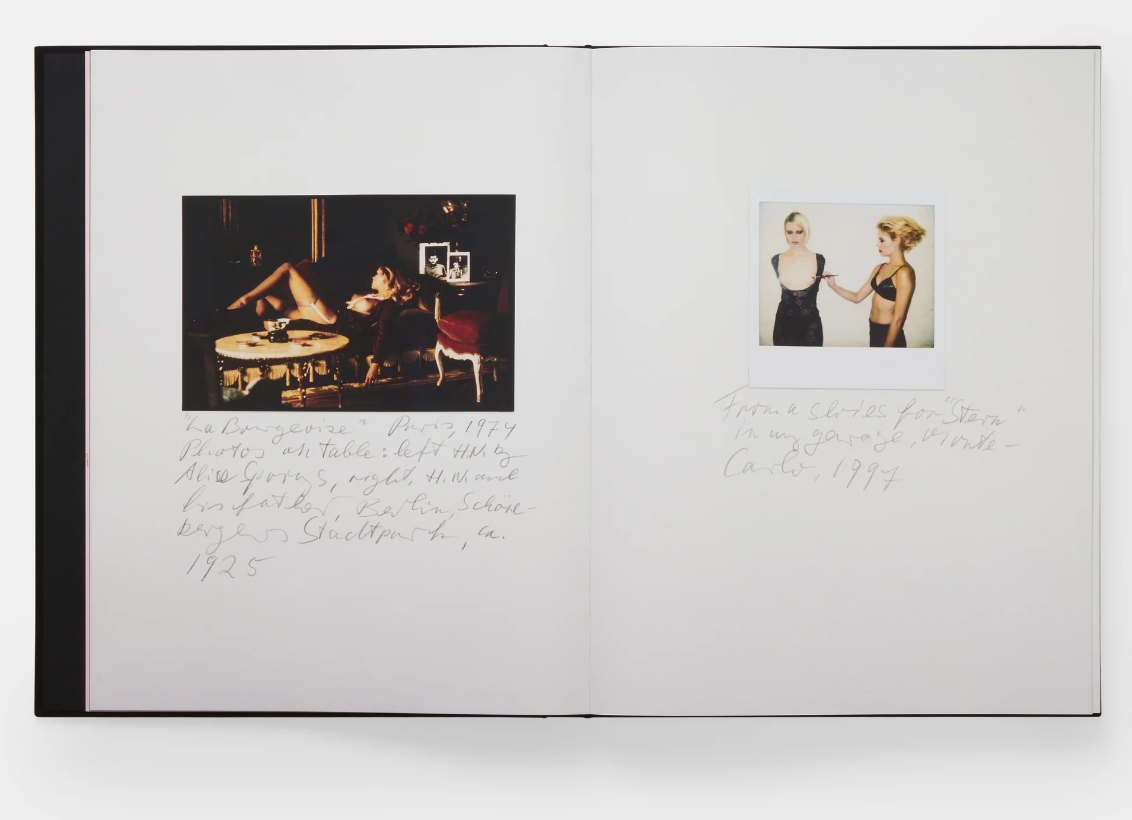 "La Bourgeoise" Paris, 1974
Photos on table: left H.N. by
Alice Springs, right, H.N. and
his father, Berlin, Schöne-
bergers Stadtpark, ca.
1925
From a series for "Stern"
in my garage, Monte-
Carlo, 1997